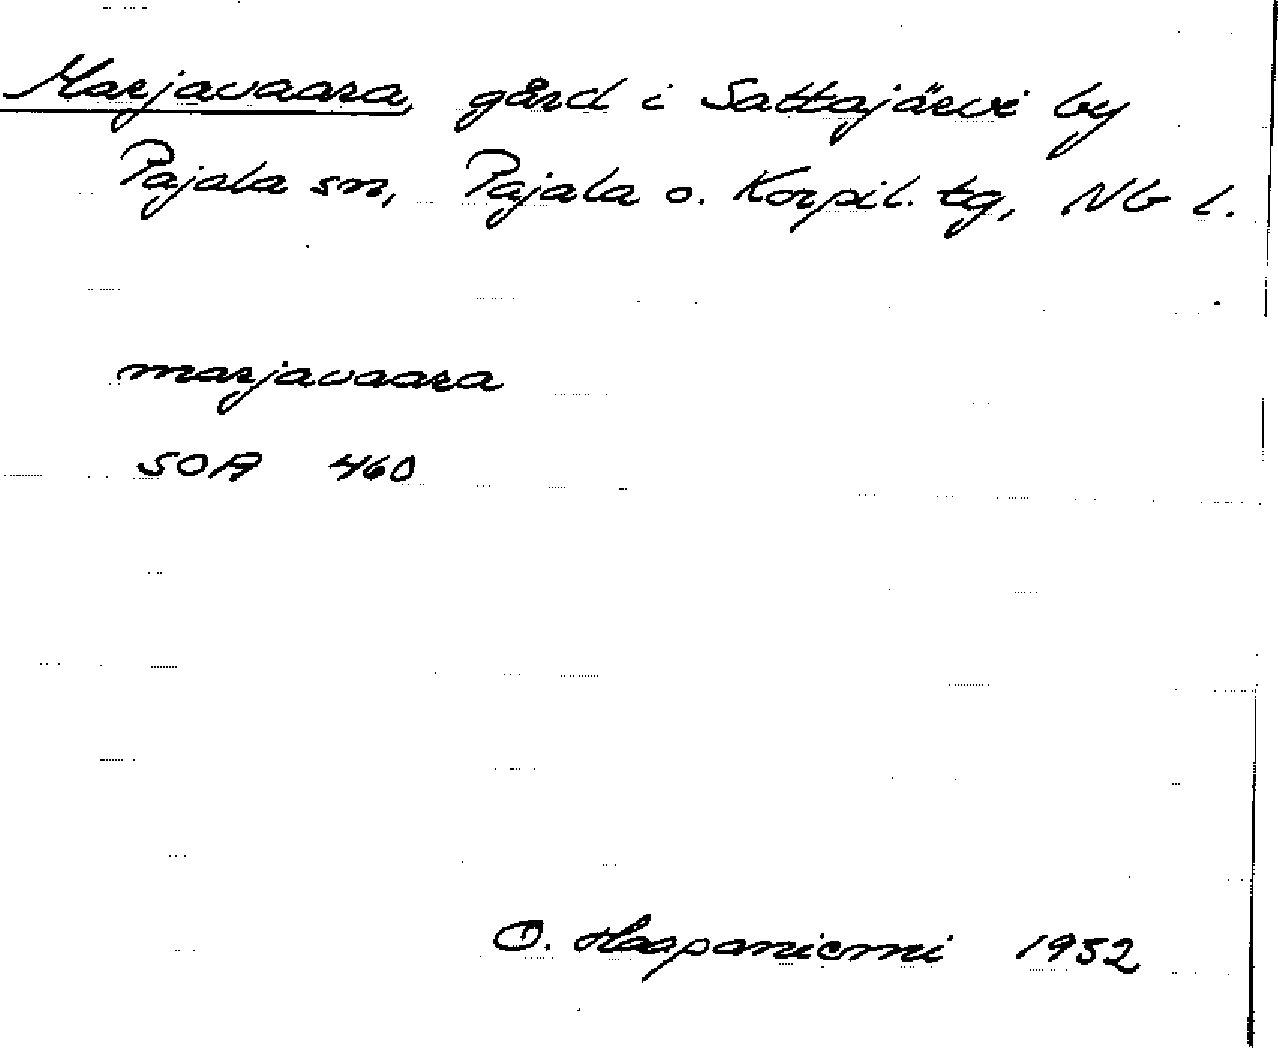 Marjavaara, gård i Sattajärvi by
Pajala sn, Pajala o. Korpil. tg, Nb l.
marjavaara
SOA 460
O. Haapaniemi 1952